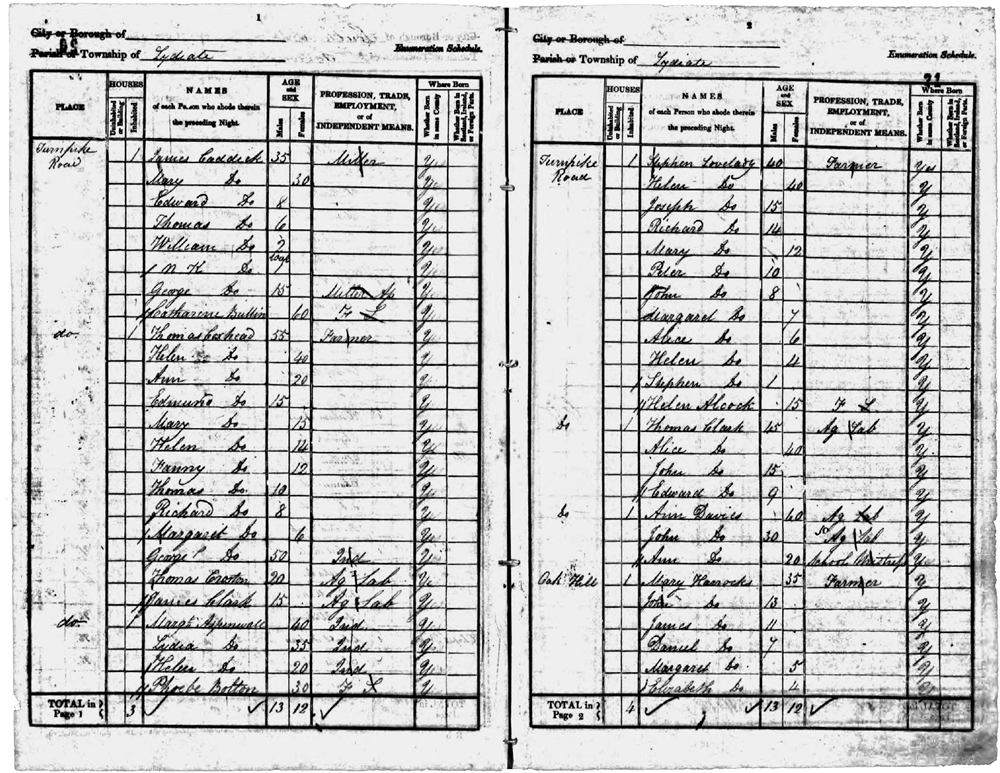 1
City or Borough of
Parish or Township of Lydiate
Enumeration Schedule.
PLACE
HOUSES
Uninhabited or Building
Inhabited
NAMES of each Person who abode therein the preceding Night.
AGE and SEX
Males
Females
PROFESSION, TRADE, EMPLOYMENT, or of INDEPENDENT MEANS.
Where Born
Whether Born in same County
Whether Born in Scotland, Ireland, or Foreign Parts.
Turnpike Road 1 James Caddick 35 Miller Y
Mary Do 30 Y
Edward Do 8 Y
Thomas Do 6 Y
William Do 2 Y
N K Do Y
George Do 15 Miller Ap Y
Catharine 60 F S Y
do 1 Thomas Coxhead 55 Farmer Y
Helen Do 40 Y
Ann Do 20 Y
Edmund Do 15 Y
Mary Do 15 Y
Helen Do 14 Y
Fanny Do 12 Y
Thomas Do 10 Y
Richard Do 8 Y
Margaret Do 6 Y
George Do 50 Ind Y
Thomas 20 Ag Lab Y
James Clark 15 Ag Lab Y
do 1 Margt Aspinwall 40 Ind Y
Lydia Do 35 Ind Y
Helen Do 20 Ind Y
Phoebe Bolton 30 F S Y
TOTAL in Page 1 3 13 12
2
City or Borough of
Parish or Township of Lydiate
Enumeration Schedule.
PLACE
HOUSES
Uninhabited or Building
Inhabited
NAMES of each Person who abode therein the preceding Night.
AGE and SEX
Males
Females
PROFESSION, TRADE, EMPLOYMENT, or of INDEPENDENT MEANS.
Where Born
Whether Born in same County
Whether Born in Scotland, Ireland, or Foreign Parts.
Turnpike Road 1 Stephen Lovelady 40 Farmer Yes
Helen Do 40 Y
Joseph Do 15 Y
Richard Do 14 Y
Mary Do 12 Y
Peter Do 10 Y
John Do 8 Y
Margaret Do 7 Y
Alice Do 6 Y
Helen Do 4 Y
Stephen Do 1 Y
Helen Alcock 15 F S Y
Do 1 Thomas Clark 45 Ag Lab Y
Alice Do 40 Y
John Do 15 Y
Edward Do 9 Y
Do 1 Ann Davies 60 Ag Lab Y
John Do 30 Ag Lab Y
Ann Do 20 School Mistress Y
Oak Hill 1 Mary Harrocks 35 Farmer Y
John Do 13 Y
James Do 11 Y
Daniel Do 7 Y
Margaret Do 5 Y
Elizabeth Do 4 Y
TOTAL in Page 2 4 13 12